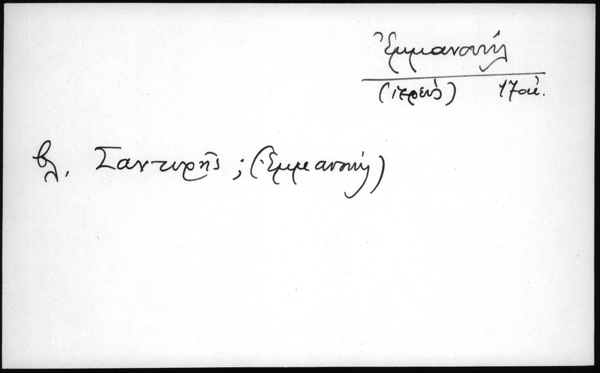 Ἐμμανουήλ
(ἱερεύς) 17ος αἰ.
βλ. Σαντυρῆς ; (Ἐμμανουήλ)